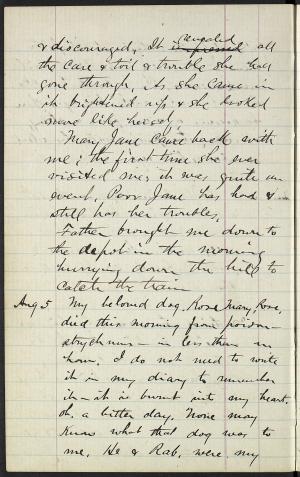 & discouraged. It revealed all
the care & toil & trouble she had
gone through. As she came in
she brightened up & she looked
more like herself.
Mary Jane came back with
me; the first time she ever
visited me; it was quite an
event. Poor Jane has had &
still has her troubles.
Father brought me down to
the depot in the morning
hurrying down the hill to
catch the train
Aug 5 My beloved dog, Rose Mary Rose,
died this morning from poison—
strychnine—in less than an
hour. I do not need to write
it in my diary to remember
it—it is burnt into my heart.
oh, a bitter day. None may
know what that dog was to
me. He & Rab, were my